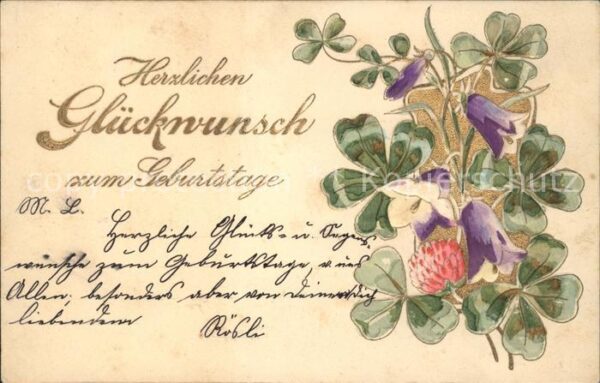 Herzlichen
Glückwunsch
zum Geburtstage
M. L.
Herzliche Glücks- u. Segens-
wünsche zum Geburtstage, v. uns
Allen; besonders aber von Deiner dich
liebenden Rösli